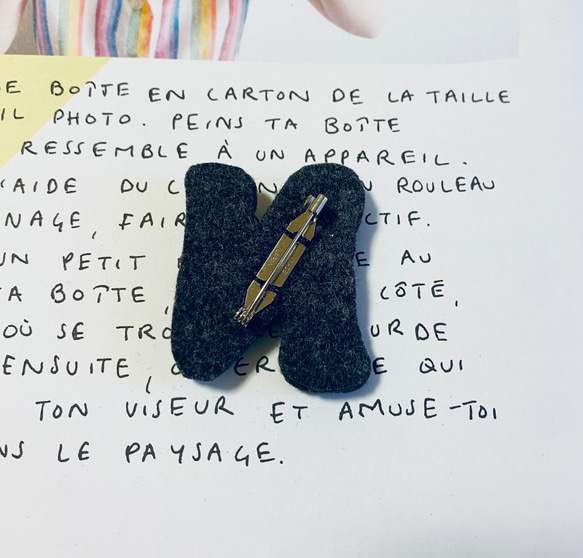 E BOÎTE EN CARTON DE LA TAILLE
IL PHOTO. PEINS TA BOÎTE
RESSEMBLE À UN APPAREIL.
'AIDE DU C N ROULEAU
NAGE, FAIR CTIF.
UN PETIT E AU
TA BOÎTE, CÔTÉ,
OÙ SE TRO UR DE
ENSUITE, ER E QUI
TON VISEUR ET AMUSE-TOI
NS LE PAYSAGE.